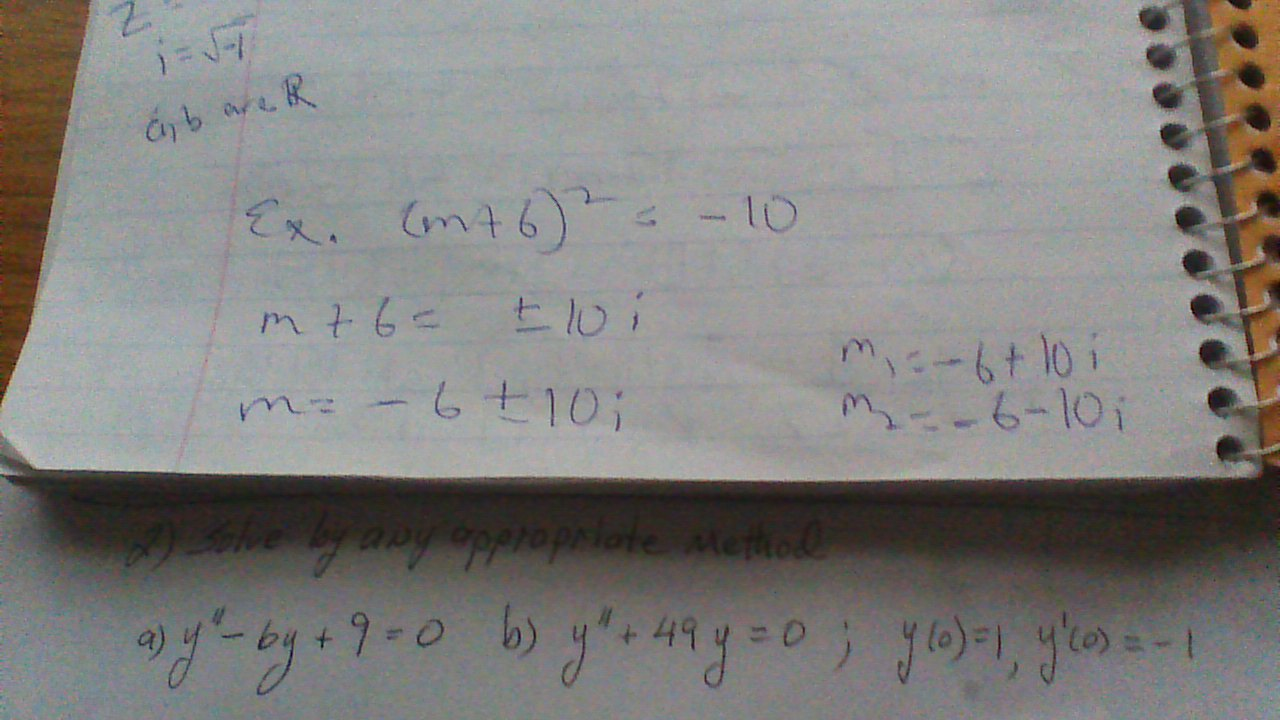 i = √-1
a, b are ℝ
Ex. (m+6)² = -10
m + 6 = ± 10 i
m = - 6 ± 10 i
m₁ = - 6 + 10 i
m₂ = - 6 - 10 i
2) Solve by any appropriate method
a) y" - 6y + 9 = 0 b) y" + 49 y = 0 ; y(0) = 1, y'(0) = -1